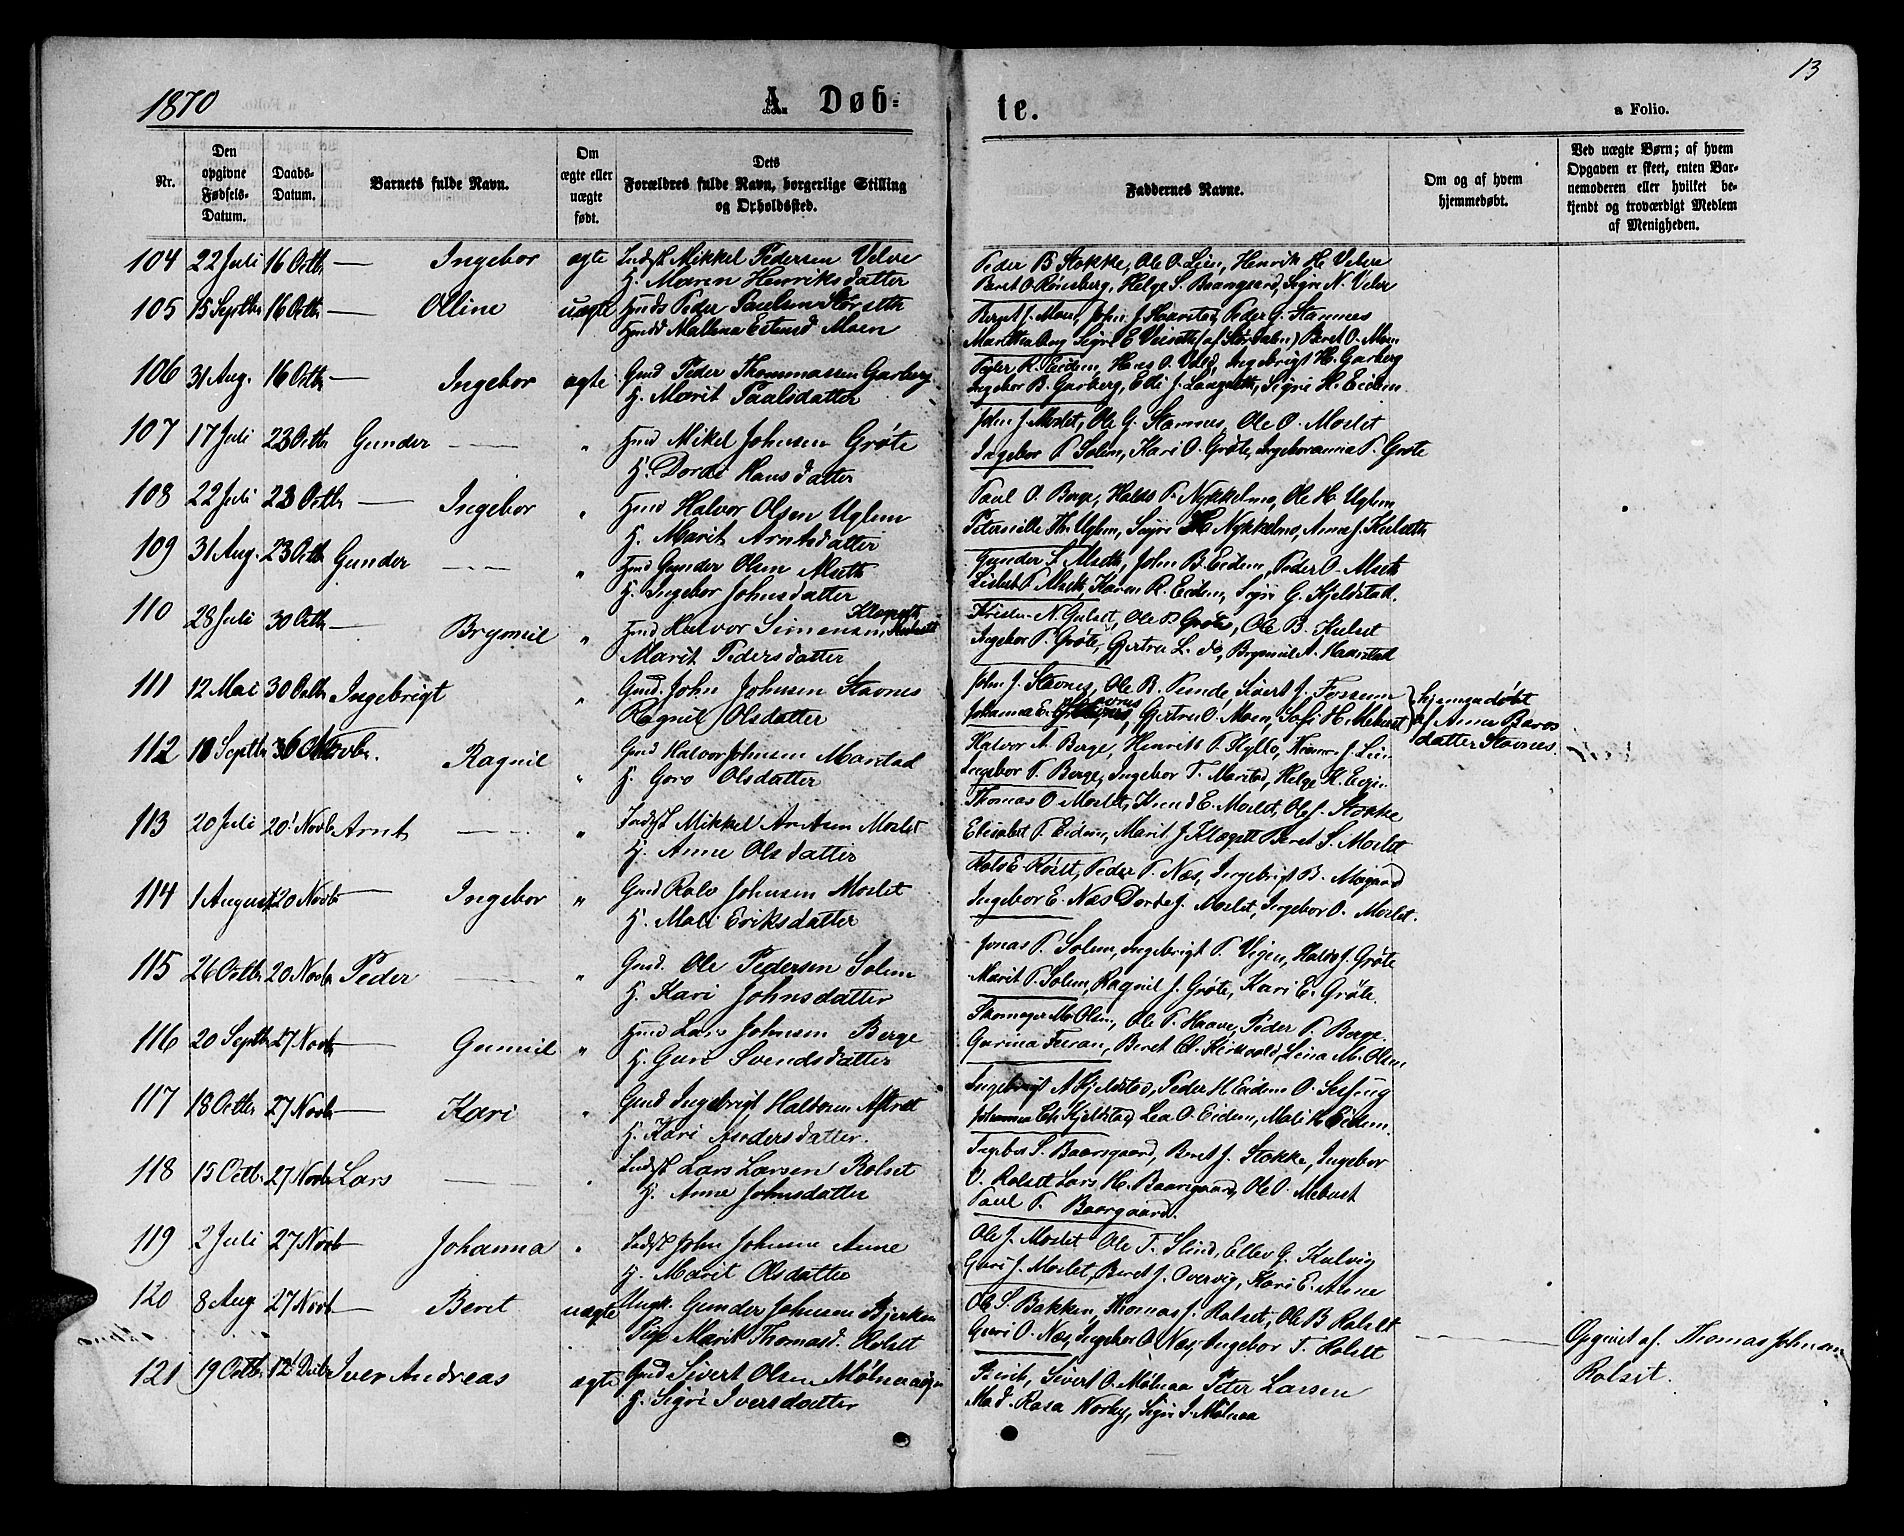 1870
A. Døb-
te.
a Folio.
13
Nr.
Den opgivne Fødsels-Datum.
Daabs-Datum.
Barnets fulde Navn.
Om ægte eller uægte født.
Dets Forældres fulde Navn, borgerlige Stilling og Opholdssted.
Faddernes Navne.
Om og af hvem hjemmedøbt.
Ved uægte Børn; af hvem Opgaven er skeet, enten Barnemoderen eller hvilket bekjendt og troværdigt Medlem af Menigheden.
104 22 Juli 16 Octb — Ingebor ægte Indst Mikkel Pedersen Velve
H. Maren Henriksdatter
Peder B Stokke, Ole O. Lien, Henrik H. Velve
Beret O. Rønsberg, Helge S. Baargaard, Sigri N. Velve
105 15 Septbr 16 Octb — Olline uægte Peder Paulsen Storseth
Mallena Estensd Moen
Berget J. Moen, John J. Haarstad, Peder G. Stamnes
Beret O. Moen
106 31 Aug. 16 Octb — Ingebor ægte Gmd Peder Thommassen Garberg
H. Marit Paalsdatter
Peder R. Eidem, Hans O. Ingebrigt H. Garberg
Ingebor B. Garberg, Elli J. Langseth, Sigri H. Eidem
107 17 Juli 23 Octb Gunder — " Hmd Mikel Johnsen Grøte
H. Dordi Hansdatter
John J. Moslet, Ole G. Stamnes, Ole O. Moslet
Ingebor P. Solem, Kari O. Grøte, Ingeboranna P. Grøte
108 22 Juli 23 Octb — Ingebor " Hmd Halvor Olsen Uglem
H. Marit Arntsdatter
Paul O. Berge, Haldo P. Nykkelmo, Ole H. Uglem
Peternille Th. Uglem, Sigri H Nykkelmo, Anna J. Kulseth
109 31 Aug. 23 Octb Gunder — " Hmd Gunder Olsen Alseth
H. Ingebor Johnsdatter
Gunder S. Alseth, John B. Eidem, Peder O. Alseth
Lisbet P. Alseth, Karen R. Eidem, Sigri G. Kjeldstad
110 28 Juli 30 Octb — Brynnil " Hmd Halvor Simensen Kulset
Marit Pedersdatter
N. Gulset, Ole P. Grøte, Ole B. Kulset
Ingebor P. Grøte, Gjertru L. do, Brynnil A. Haarstad
111 12 Mai 30 Octb Ingebrigt " Gmd. John Johnsen Stavnes
Ragnil Olsdatter
John J. Stavnes, Ole B. Sivert J. Fossum
Johanna E. Gjertru O. Moen, Sofi H. Mebust
Hjemmedøbt af Anne Baros datter Stavnes.
112 Septbr Novbr. Ragnil " Gmd Halvor Johnsen Marstad
H. Goro Olsdatter
Halvor A. Berge, Henrik P. Hyllo, J. Lien
Ingebor P. Berge, Ingebor T. Marstad, Helge K.
113 20 Juli 20 Novb Arnt — " Indst Mikkel Arntsen Moslet
H. Anne Olsdatter
Thomas O Moslet, Knud E. Moslet, Ole J. Stokke
Elisabet P. Eidem, Marit J. Klegset Beret S. Moslet
114 1 August 20 Novb — Ingebor " Gmd Rolv Johnsen Moslet
H. Mali Eriksdatter
Peder P. Næs, Ingebrigt B.
Ingebor E. Næs Dorde J. Moslet, Ingebor O. Moslet.
115 26 Octb 20 Novb Peder — " Gmd. Ole Pedersen Solem
H. Kari Johnsdatter
Jonas P. Solem, Ingebrigt P. Vigen, Haldo J. Grøte
Marit P. Solem, Ragnil J. Grøte, Kari E. Grøte.
116 20 Septb 27 Novb — Gunnil " Hmd Lars Johnsen Berge
H. Guri Svendsdatter
Ole P. Haave, Peder P. Berge
Gurina Furan, Beret Kirkvold, Lina M. Olsen
117 18 Octb 27 Novb — Kari " Gmd Ingebrigt Haldosen Aftret
H. Kari Andersdatter.
Ingebrigt A Kjeldstad, Peder H Eidem O.
Johanna Kjeldstad, Lea O. Eidem, Mali H Eidem.
118 15 Octb 27 Novb Lars — " Indst Lars Larsen Rolset
H. Anne Johnsdatter
Ingebor S. Baarsgaard, Beret J. Stokke, Ingebor
O. Rolset Lars H. Baarsgaard, Ole O. Mebust
Paul P. Baargaard.
119 2 Juli 27 Novb — Johanna " Indst John Johnsen Aune
H. Marit Olsdatter
Ole J. Moslet Ole T. Slind, Ellev G. Kulvig
Guri J. Moslet, Beret J. Overvig, Kari E. Aune
120 8 Aug 27 Novb — Beret uægte Ungk. Gunder Johnsen Bjerken
Pige Marit Thomasd. Rolset
Ole S. Bakken, Thomas J. Rolset, Ole B Rolset
Guri O. Næs, Ingebor O Næs, Ingebor T. Rolset
Opgivet af Thomas Johnsen
Rolset.
121 19 Octb 12 Decb Iver Andreas ægte Gmd Sivert Olsen Mølnaaøien
H. Sigri Iversdatter
Sivert O. Mølnaa Peter Larsen
Mad. Rosa Norby, Sigri I. Mølnaa